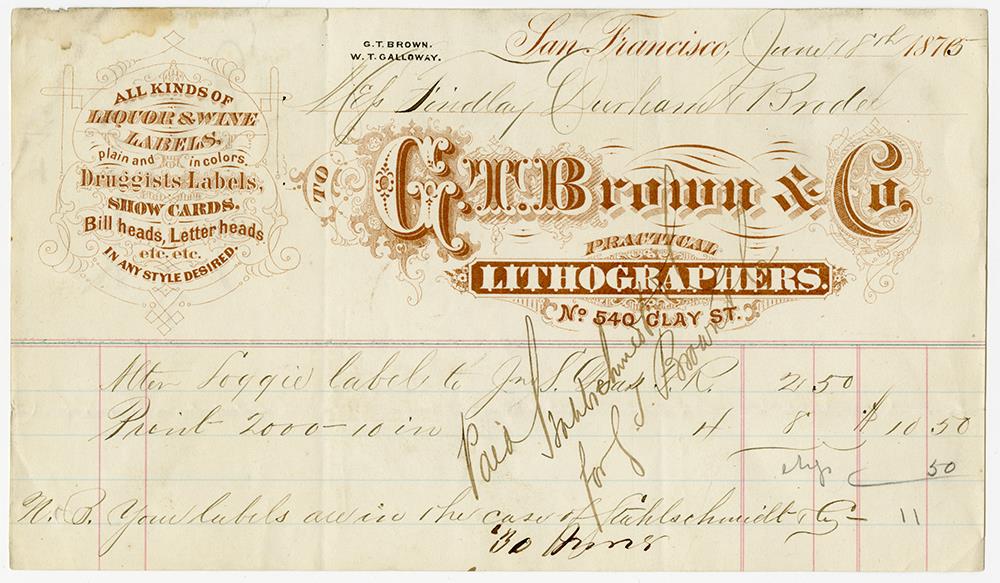 G. T. BROWN.
W. T. GALLOWAY.
San Francisco, June 8th 1875
Findlay Durham & Brodie
ALL KINDS OF
LIQUOR & WINE
LABELS,
plain and in colors,
Druggists Labels,
SHOW CARDS.
Bill heads, Letter heads
etc. etc.
IN ANY STYLE DESIRED.
TO
G. T. Brown & Co.
PRACTICAL
LITHOGRAPHERS.
No 540 CLAY ST.
label to 2 50
Print 2000 - 10 in 4 8 $ 10 50
50
N. B. Your labels are in the case of Stahlschmidt & Co - 11
Paid Stahlschmidt
for G. T. Brown